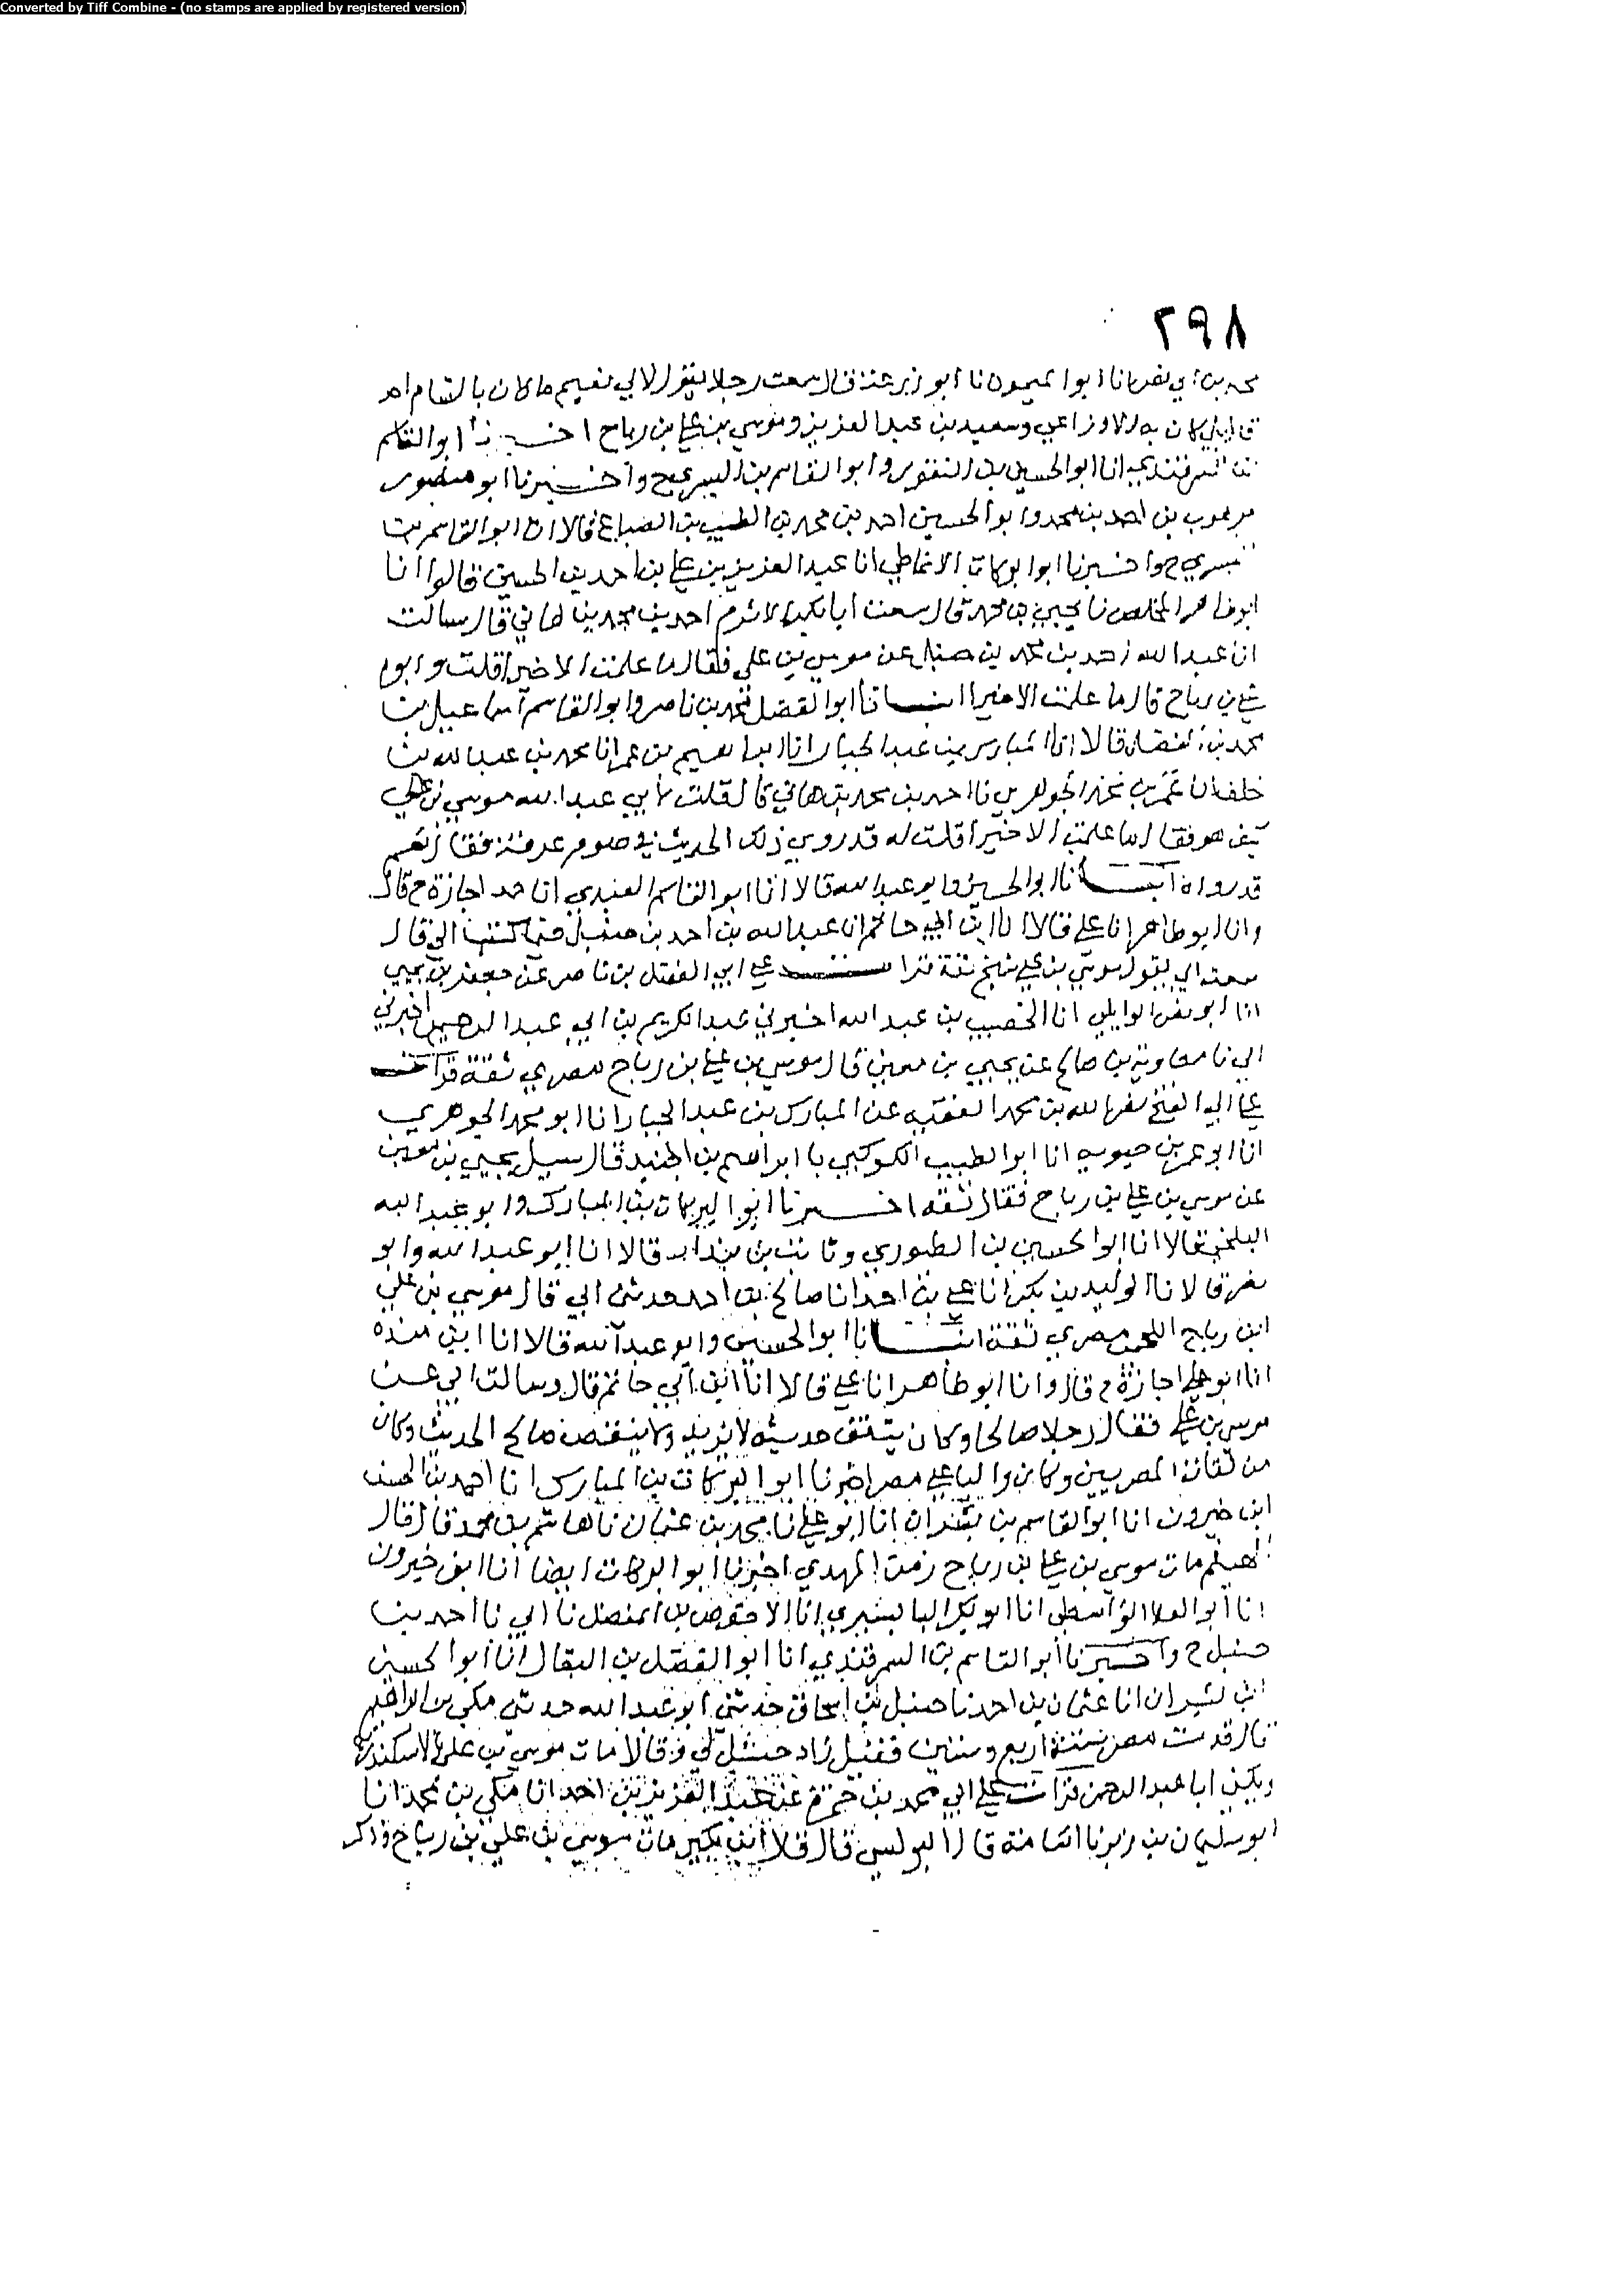 Converted by Tiff Combine - (no stamps are applied by registered version)
٢٩٨
محمد بن أبي نصر انا ابو الميمون نا ابو زرعة قال سمعت رجلا يقول لابي نعيم ما كان بالشام احد
قال بلى كان به الاوزاعي وسعيد بن عبد العزيز وموسى بن علي بن رباح اخبرنا ابو القاسم
السمرقندي انا ابو الحسين بن النقور وابو القاسم بن البسري ح واخبرنا ابو منصور
موهوب بن احمد بن محمد وابو الحسين احمد بن محمد بن الطيب بن الصباغ قالا انا ابو القاسم بن
البسري ح واخبرنا ابو البركات الانماطي انا عبد العزيز بن علي بن احمد بن الحسين قالوا انا
ابو طاهر المخلص نا يحيى بن محمد قال سمعت ابا بكر الاثرم احمد بن محمد بن هاني قال سالت
ابا عبد الله احمد بن محمد بن حنبل عن موسى بن علي فقال ما علمت الا خيرا قلت وابوه
علي بن رباح قال ما علمت الا خيرا انبانا ابو الفضل محمد بن ناصر وابو القاسم اسماعيل بن
محمد بن الفضل قالا انا المبارك بن عبد الجبار انا ابراهيم بن عمر انا محمد بن عبد الله بن
خلف انا عمر بن محمد الجوهري نا احمد بن محمد بن هاني قال قلت لابي عبد الله موسى بن علي
كيف هو فقال ما علمت الا خيرا قلت له قد روى ذلك الحديث في صوم عرفة فقال نعم
قد رواه انبانا ابو الحسين وابو عبد الله قالا انا ابو القاسم العبدي انا حمد اجازة ح قال
وانا ابو طاهر انا علي قالا انا ابن ابي حاتم انا عبد الله بن احمد بن حنبل فيما كتب الي قال
سمعت ابي يقول موسى بن علي شيخ ثقة قرات على ابي الفضل بن ناصر عن جعفر بن يحيى
انا ابو نصر الوايلي انا الخصيب بن عبد الله اخبرني عبد الكريم بن ابي عبد الرحمن اخبرني
ابي نا معاوية بن صالح عن يحيى بن معين قال موسى بن علي بن رباح مصري ثقة قرات
على ابي الفتح نصر الله بن محمد الفقيه عن المبارك بن عبد الجبار انا ابو محمد الجوهري
انا ابو عمر بن حيويه انا ابو الطيب الكوكبي نا ابراهيم بن الجنيد قال سيل يحيى بن معين
عن موسى بن علي بن رباح فقال ثقة اخبرنا ابو البركات بن المبارك وابو عبد الله
البلخي قالا انا ابو الحسين بن الطيوري وثابت بن بندار قالا انا ابو عبد الله وابو
نصر قالا نا الوليد بن بكر انا علي بن احمد انا صالح بن احمد حدثني ابي قال موسى بن علي
ابن رباح اللخمي مصري ثقة انبانا ابو الحسين وابو عبد الله قالا انا ابن منده
انا ابو علي اجازة ح قال وانا ابو طاهر انا علي قالا انا ابن ابي حاتم قال وسالت ابي عن
موسى بن علي فقال رجلا صالحا وكان يتقن حديثه لا يزيد ولا ينقص صالح الحديث وكان
من ثقات المصريين وكان واليا على مصر اخبرنا ابو البركات بن المبارك انا احمد بن الحسن
ابن خيرون انا ابو القاسم بن بشران انا ابو علي نا محمد بن عثمان نا هاشم بن محمد قال قال
الهيثم مات موسى بن علي بن رباح زمن المهدي اخبرنا ابو البركات ايضا انا ابن خيرون
انا ابو العلا الواسطي انا ابو بكر البابسيري انا الاحوص بن المفضل نا ابي نا احمد بن
حنبل ح واخبرنا ابو القاسم بن السمرقندي انا ابو الفضل بن البقال انا ابو الحسين
ابن بشران انا عثمان بن احمد نا حنبل بن اسحاق حدثني ابو عبد الله حدثني مكي بن ابراهيم
قال قدمت مصر سنة اربع وستين فقيل زاد حنبل لي وقالا مات موسى بن علي بالاسكندرية
ويكنى ابا عبد الرحمن قرات على ابي محمد بن حمزة عن عبد العزيز بن احمد انا مكي بن محمد انا
ابو سليمان بن زبر نا اسامة قال ابو لبيس قال قال ابن بكير مات موسى بن علي بن رباح وذكر